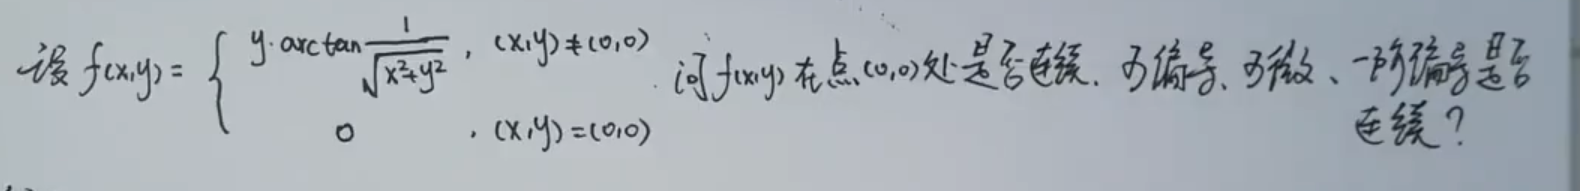 设 f(x,y) = { y·arctan 1/√(x²+y²) , (x,y)≠(0,0)
0 , (x,y)=(0,0)
问f(x,y)在点(0,0)处是否连续、可偏导、可微、一阶偏导是否
连续?